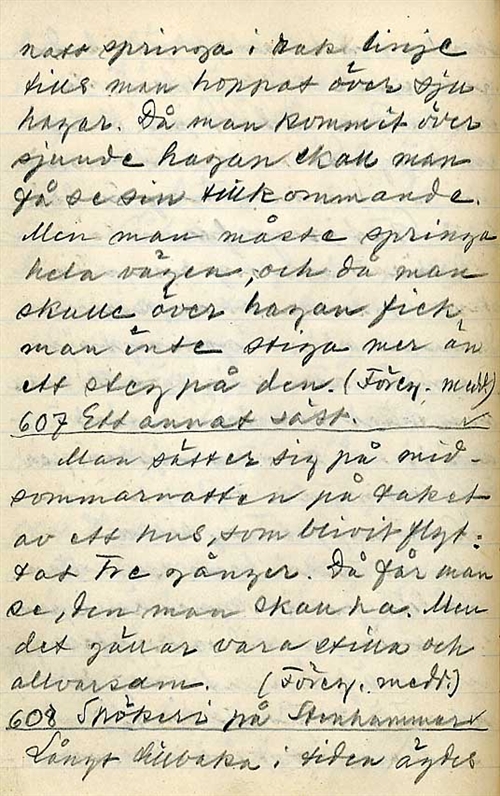 natt springa i rak linje
tills man hoppat över sju
hagar. Då man kommit över
sjunde hagan skall man
få se sin tillkommande.
Men man måste springa
hela vägen, och då man
skulle över hagan fick
man inte stiga mer än
ett steg på den. (Föreg. medd.)
607 Ett annat sätt.
Man sätter sig på mid-
sommarnatten på taket
av ett hus, som blivit flyt-
tat tre gånger. Då får man
se, den man skall ha. Men
det gäller vara stilla och
allvarsam. (Föreg. medd.)
608 Spökeri på Stenhammar
Långt tillbaka i tiden ägdes